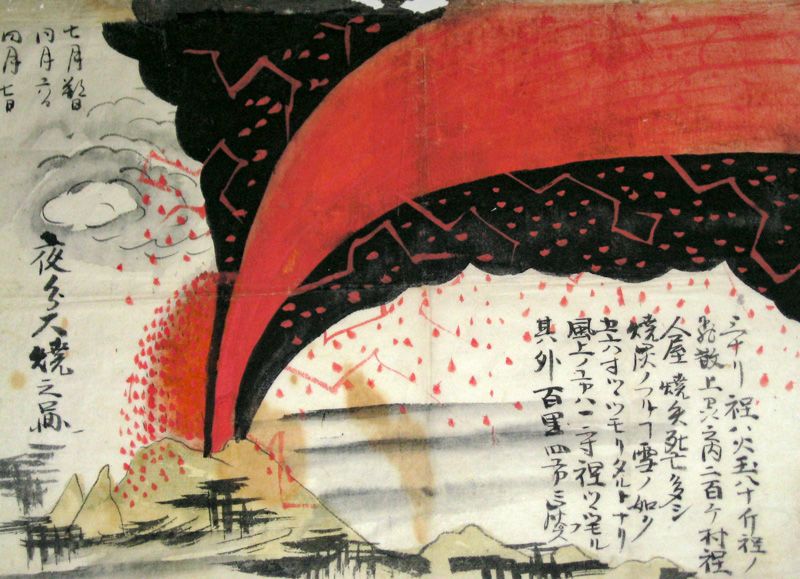 三十リ程ハ火玉八十斤程ノ
飛散上州之内二百ケ村程
人屋焼失死亡多シ
焼灰ノフルヿ雪ノ如ク
五六寸ツヽツモリタルトナリ
風上ノ方ハ一二寸程ツヽツモル
其外百里四方
七月朔日
同月六日
同月七日
夜分大焼之圖